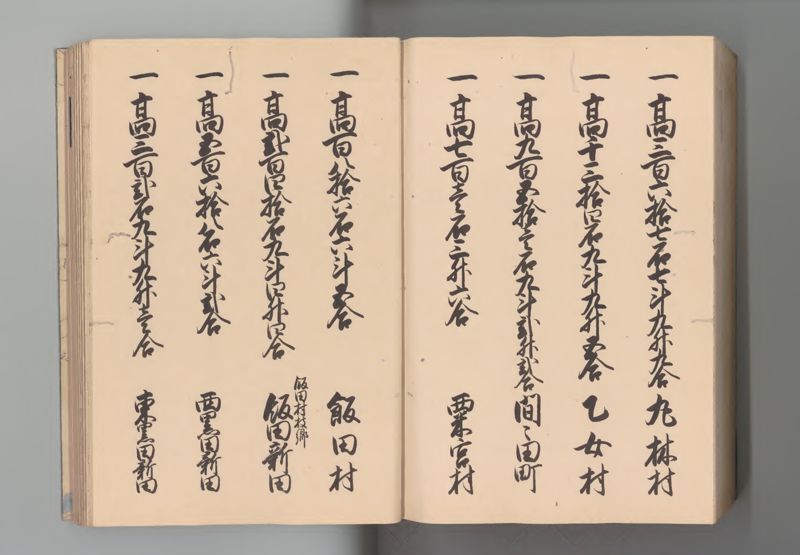 一 高三百六拾七石七斗九升九合 丸林村
一 高千三拾四石九斗九升五合 乙女村
一 高九百五拾壱石九斗弐升弐合 間々田町
一 高七百壱石三升六合 粟宮村
一 高百八拾六石六斗五合 飯田村
飯田村枝郷
一 高弐百四拾石九斗四升四合 飯田新田
一 高五百六拾八石六斗弐合 西黒田新田
一 高三百弐石九斗九升壱合 東黒田新田